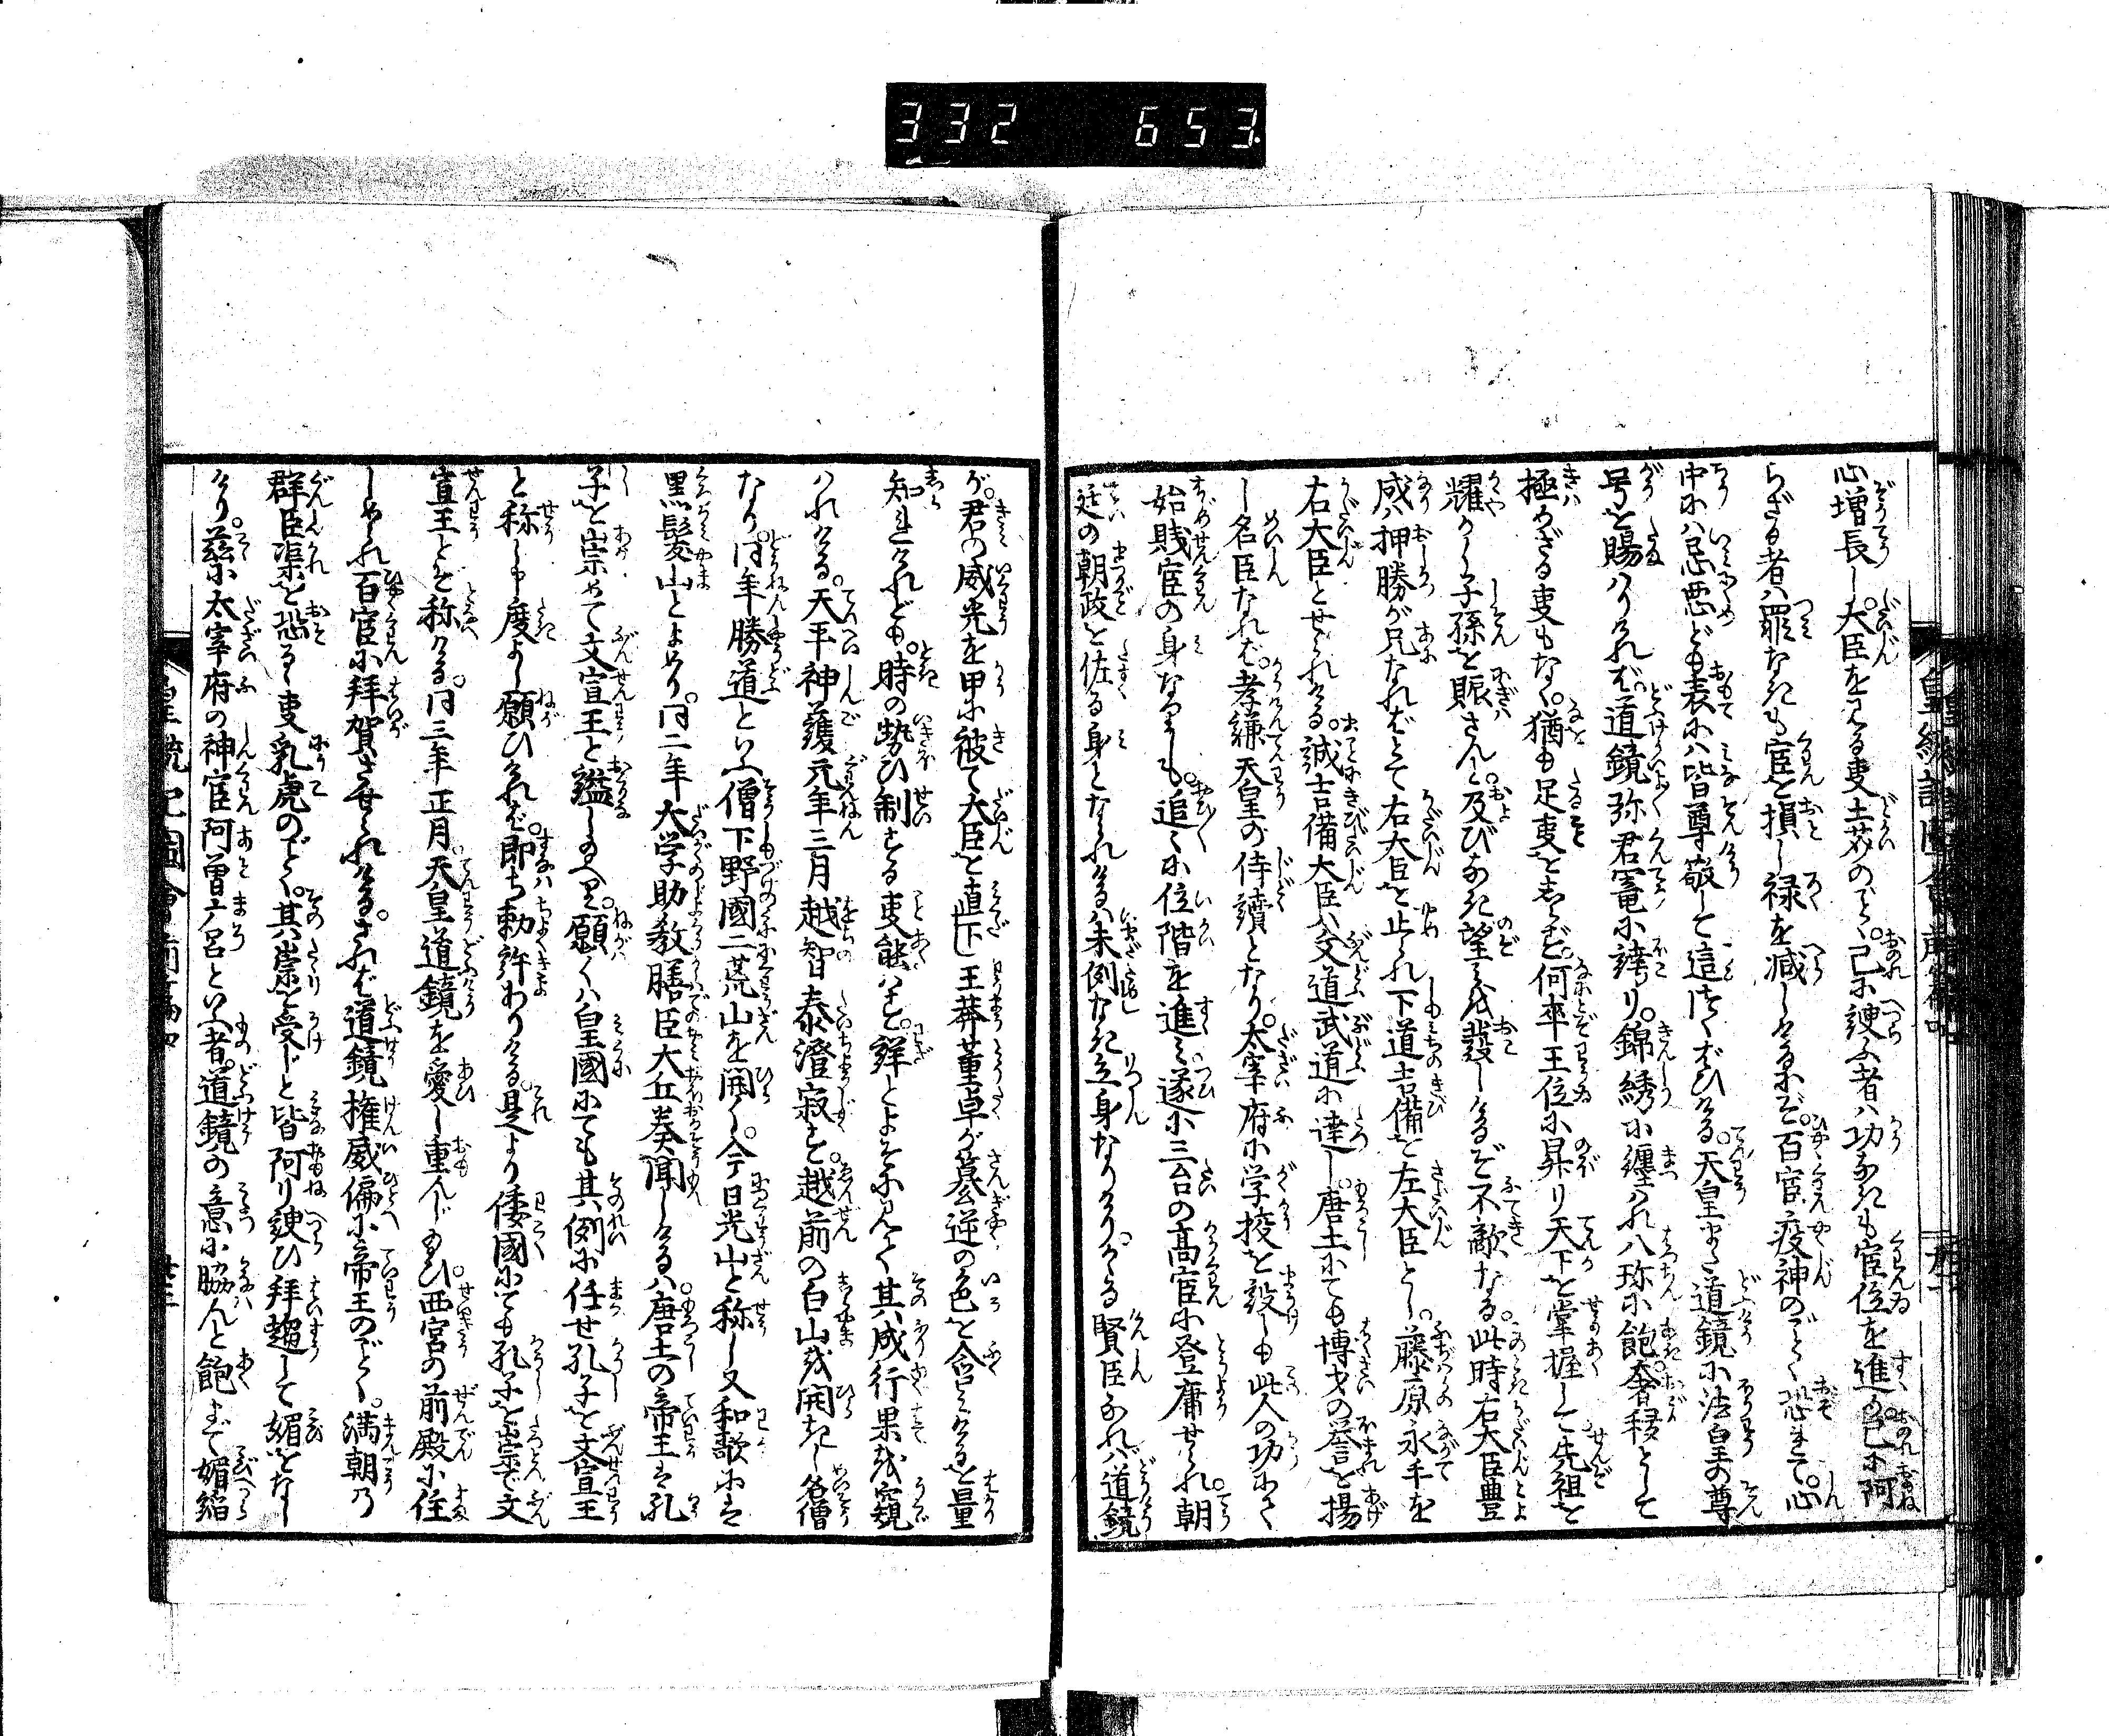 332 653
心増長し。大臣を見る事土芥のごとく。己に諛ふ者ハ功なきも官位を進め。己に阿
らざる者ハ罪なきも官を損し禄を減じけるにぞ。百官疫神のごとく恐れて。心
中にハ忌悪ども表にハ皆尊敬して這つくばひける。天皇また道鏡に法皇の尊
号を賜ハりけれバ。道鏡弥君寵に誇り。錦繍に纏ハれ八珍に飽。奢移として
極めざる事もなく。猶も足事をしらず。何卒王位に昇り天下を掌握して先祖を
耀かし子孫を賑さんと。及びなき望ミを發しけるぞ不敵なる。此時右大臣豊
成ハ押勝が兄なれバとて右大臣を止られ下道吉備を左大臣とし。藤原永手を
右大臣とせられける。誠吉備大臣ハ文道武道に達し。唐土にても博才の誉を揚
し名臣なれバ。孝謙天皇の侍讀となり。太宰府に学校を設しも此人の功にて
始賎官の身なりしも。追々に位階を進ミ遂に三台の高官に登庸せられ。朝
廷の朝政を佐る身となられけるハ未例なき立身なりけり。かゝる賢臣なれバ道鏡
が。君の威光を甲に被て大臣を直下し王莽董卓が簒逆の色を含ミけるを量
知ミけれども。時の勢ひ制する事能ハず。詳とよそに見て其成行果を窺
ハれける。天平神護元年三月越智泰澄寂す。越前の白山を開きし名僧
なり。同年勝道といふ僧下野國二荒山を開く。今日光山と称し又和歌にハ
黒髪山とよめり。同二年大学助教膳臣大丘奏聞しけるハ。唐土の帝王ハ孔
子を崇めて文宣王と諡し給へり。願くハ皇國にても其例に任せ孔子を文宣王
と称し申度よし願ひけれバ。即ち勅許ありける。是より倭國にても孔子を崇て文
宣王とぞ称ける。同三年正月天皇道鏡を愛し重んじ給ひ。西宮の前殿に住
しめられ百官に拝賀させられける。されバ道鏡権威偏に帝王のごとく。満朝の
群臣渠を恐るゝ事乳虎のごとく。其祟を受じと皆阿り諛ひ拝趨して媚をなし
けり。茲に太宰府の神官阿曽麻呂といふ者。道鏡の意に協んと飽まで媚諂
皇統記圖會前篇四